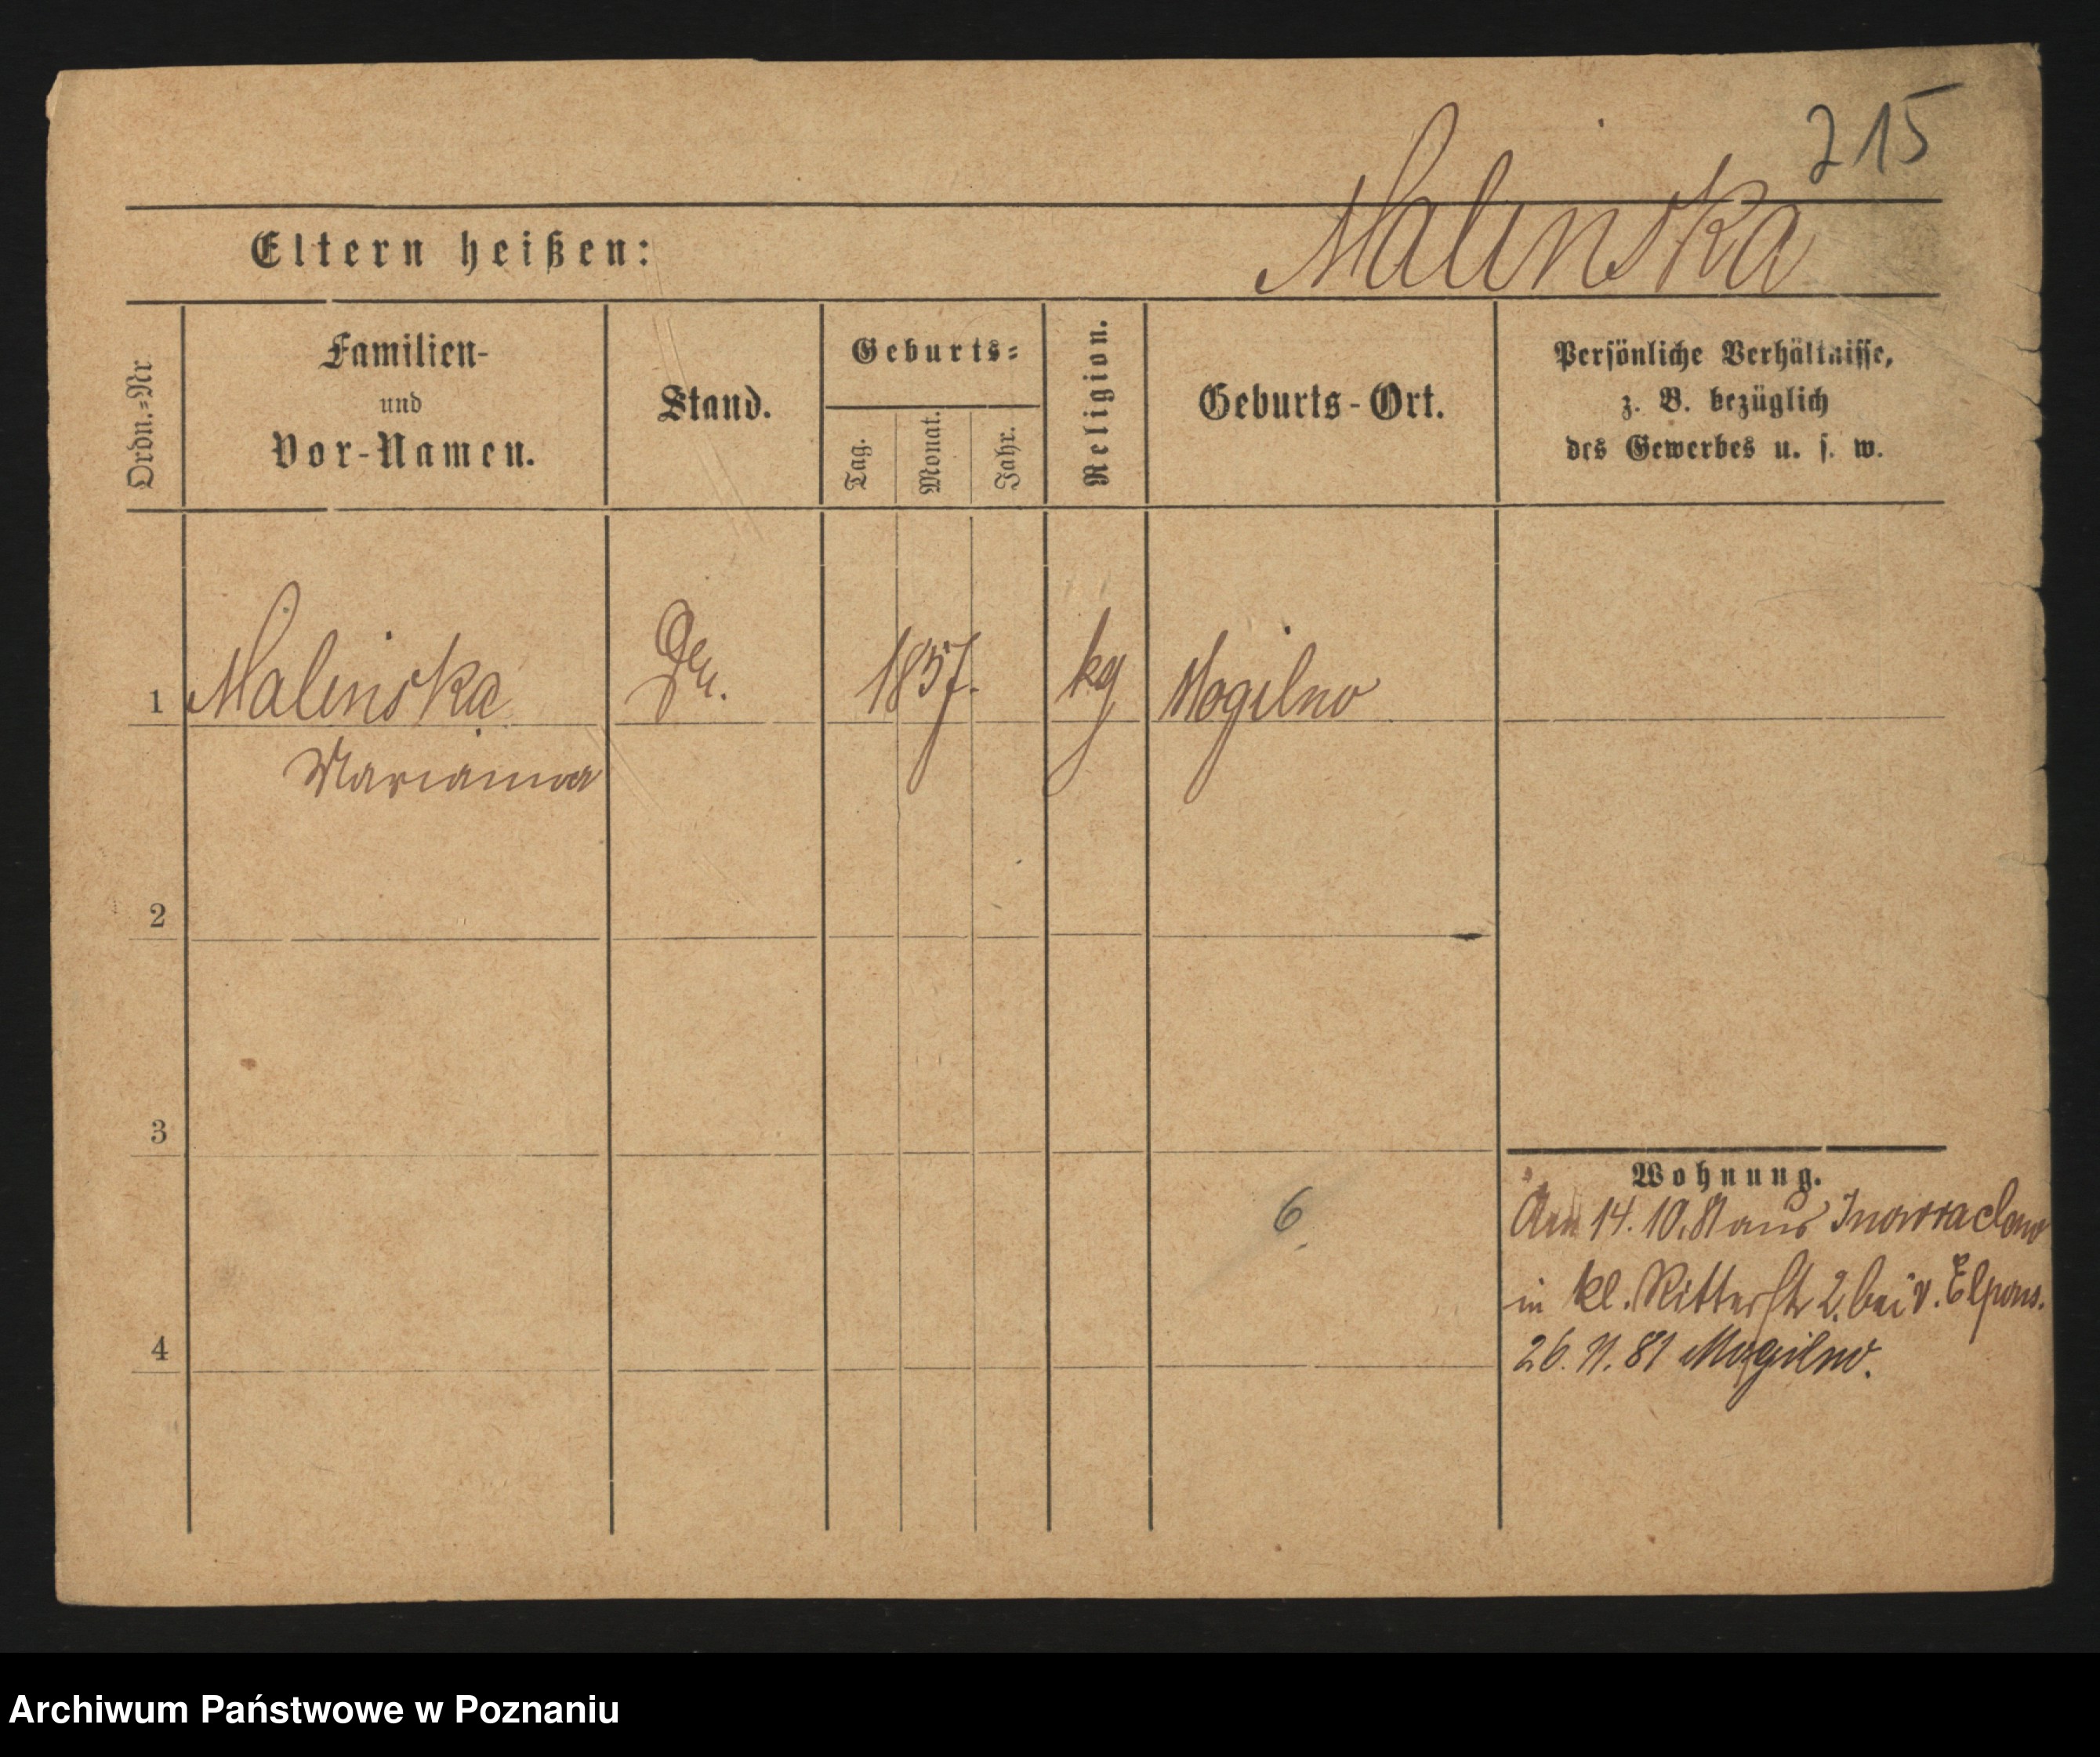 215
Malinska
Eltern heißen:
Ordn.=Nr
Familien-
und
Vor-Namen.
Stand.
Geburts=
Tag.
Monat.
Jahr.
Religion.
Geburts-Ort.
Persönliche Verhältnisse,
z. B. bezüglich
des Gewerbes u. s. w.
1 Malinska 1857. kg Mogilno
Marianna
2
3
4
Wohnung.
14. 10. 81 aus Inowraclaw
in kl. Ritterstr 2. bei v. Elpons.
26. 11. 81 Mogilno.
6
Archiwum Państwowe w Poznaniu